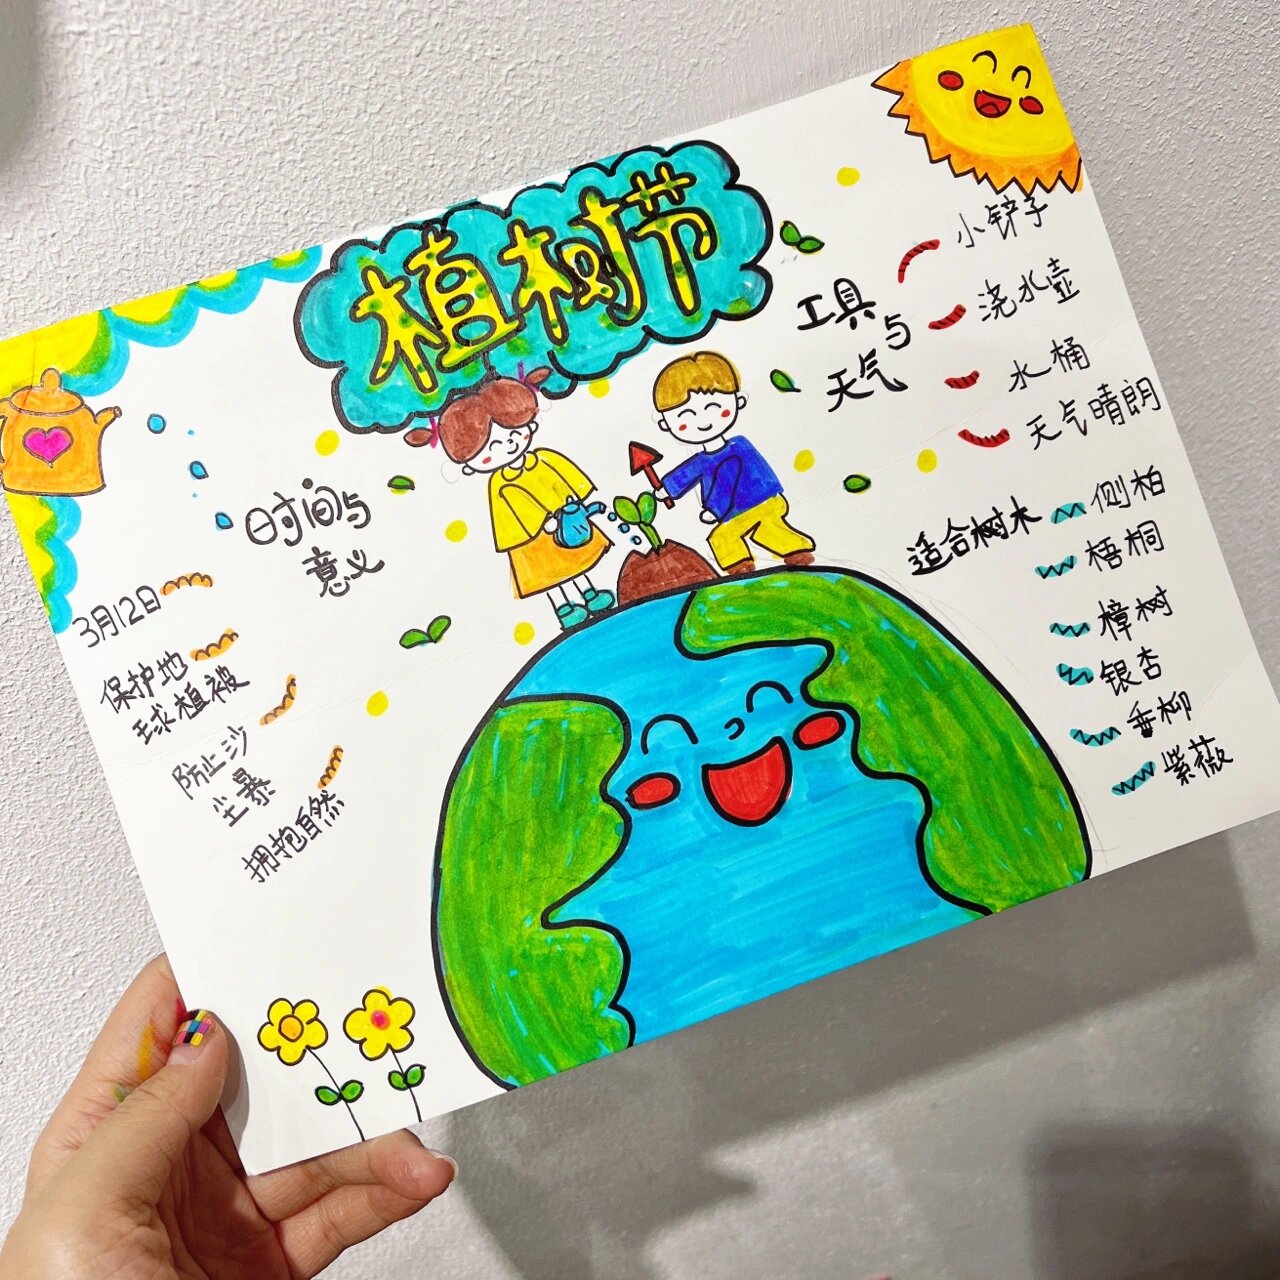 植树节
时间与
意义
3月12日
保护地
球植被
防止沙
尘暴
拥抱自然
工具
与
天气
小铲子
浇水壶
水桶
天气晴朗
适合树木
侧柏
梧桐
樟树
银杏
垂柳
紫薇